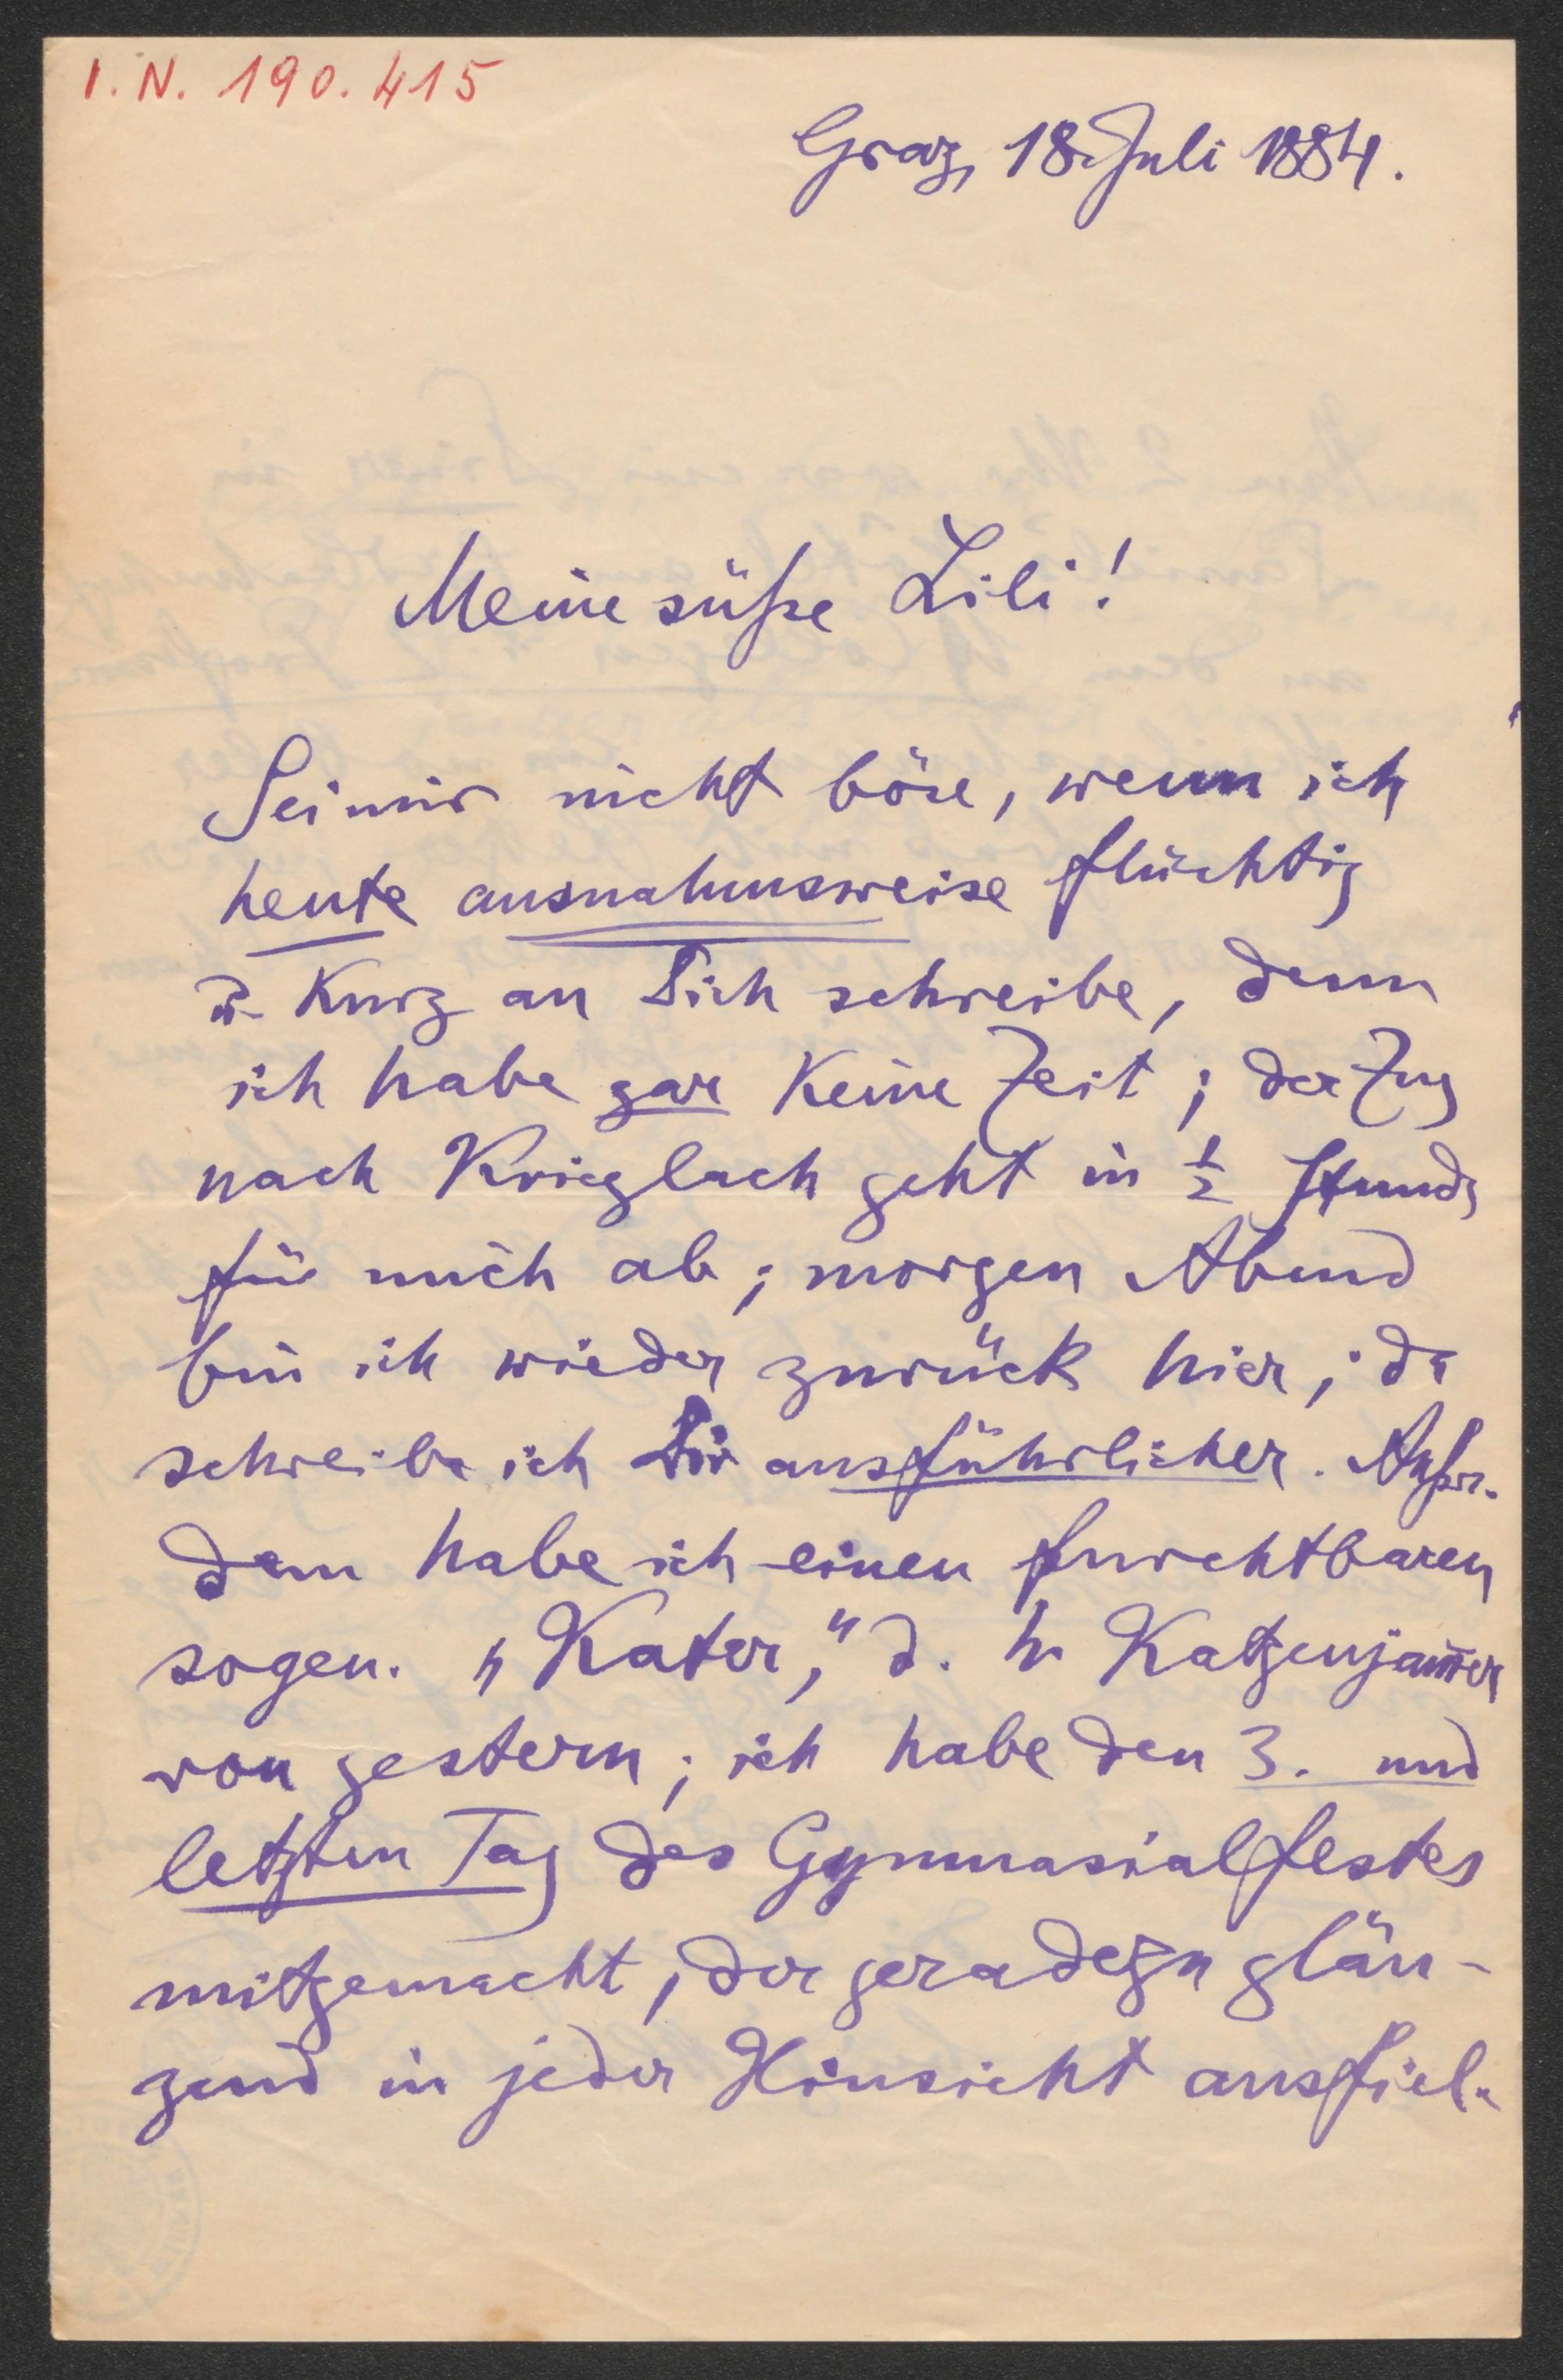 I. N. 190.415
Graz, 18. Juli 1884.
Meine süße Lili!
Sei mir nicht böse, wenn ich
heute ausnahmsweise flüchtig
u. kurz an Dich schreibe, denn
ich habe gar keine Zeit; der Zug
nach Krieglach geht in ½ Stunde
für mich ab; morgen Abend
bin ich wieder zurück hier; da
schreibe ich Dir ausführlicher. Außer-
dem habe ich einen furchtbaren
sogen. „Kater," d. h. Katzenjam̅er
von gestern; ich habe den 3. und
letzten Tag des Gymnasialfestes
mitgemacht, der geradezu glän-
zend in jeder Hinsicht ausfiel.